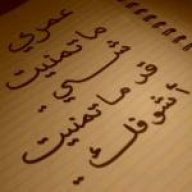 عمري
ما تمنيت
شيء
قد ما تمنيت
أشوفك